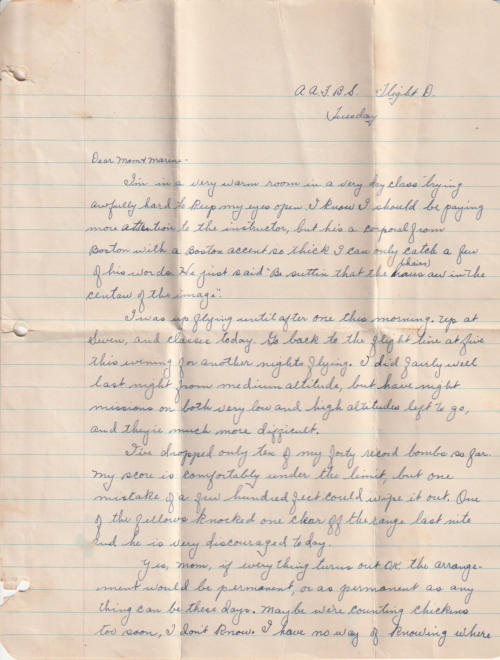 A A F B S Flight D.
Tuesday
Dear Mom & Marine -
I'm in a very warm room in a very dry class trying
awfully hard to keep my eyes open. I know I should be paying
more attention to the instructor, but his a corporal from
Boston with a Boston accent so thick I can only catch a few
(hairs)
of his words. He just said "Be suttin that the haus aw in the
centaw of the image".
I was up flying until after one this morning. Up at
seven, and classes today. Go back to the flight line at five
this evening for another nights flying. I did fairly well
last night from medium altitude, but have night
missions on both very low and high altitudes left to go,
and they're much more difficult.
I've dropped only ten of my forty record bombs so far.
My score is comfortably under the limit, but one
mistake of a few hundred feet could wipe it out. One
of the fellows knocked one clear off the range last nite
and he is very discouraged today.
Yes, mom, if everything turns out OK the arrange-
ment would be permanent, or as permanent as any
thing can be these days. Maybe we're counting chickens
too soon, I don't know. I have no way of knowing where